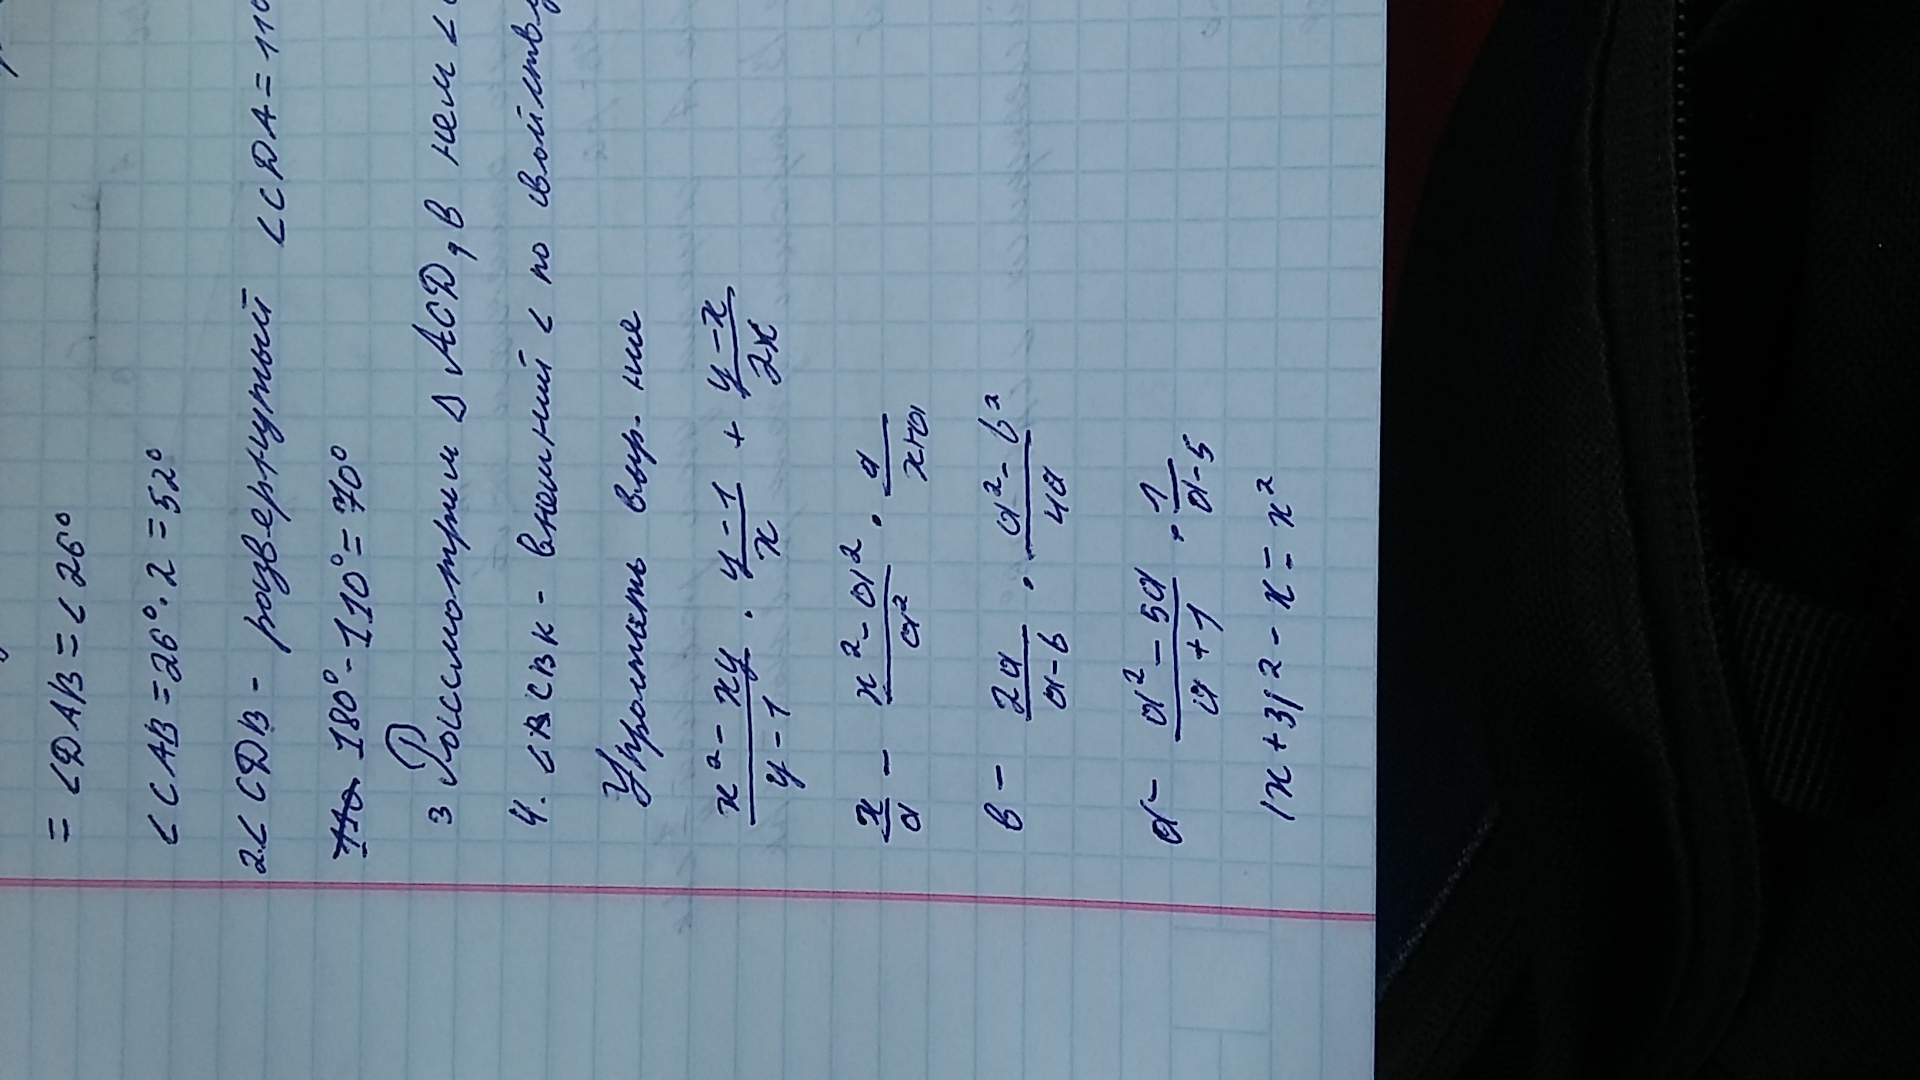 = ∠DAB = ∠26°
∠CAB = 26° · 2 = 52°
2.∠CDB - развернутый ∠CDA = 110
180° - 110° = 70°
3 Рассмотрим Δ ACD, в нем ∠
4. ∠ВСВК - внешний ∠ по свойству
Упростить выр-ние
(x² - xy)/(y - 1) · (y - 1)/x + (y - x)/(2x)
x/a - (x² - a²)/a² · a/(x+a)
в - 2a/(a - b) · (a² - b²)/(4a)
a - (a² - 5a)/(a + 1) · 1/(a - 5)
(x + 3)² - x = x²